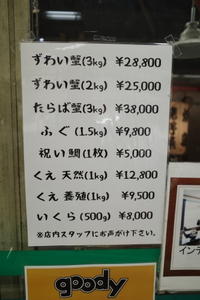 ずわい蟹(3kg) ¥28,800
ずわい蟹(2kg) ¥25,000
たらば蟹(3kg) ¥38,000
ふぐ(1.5kg) ¥9,800
祝い鯛(1枚) ¥5,000
くえ 天然(1kg) ¥12,800
くえ 養殖(1kg) ¥9,500
いくら(500g) ¥8,000
※店内スタッフにお声がけ下さい。
goody
インテ